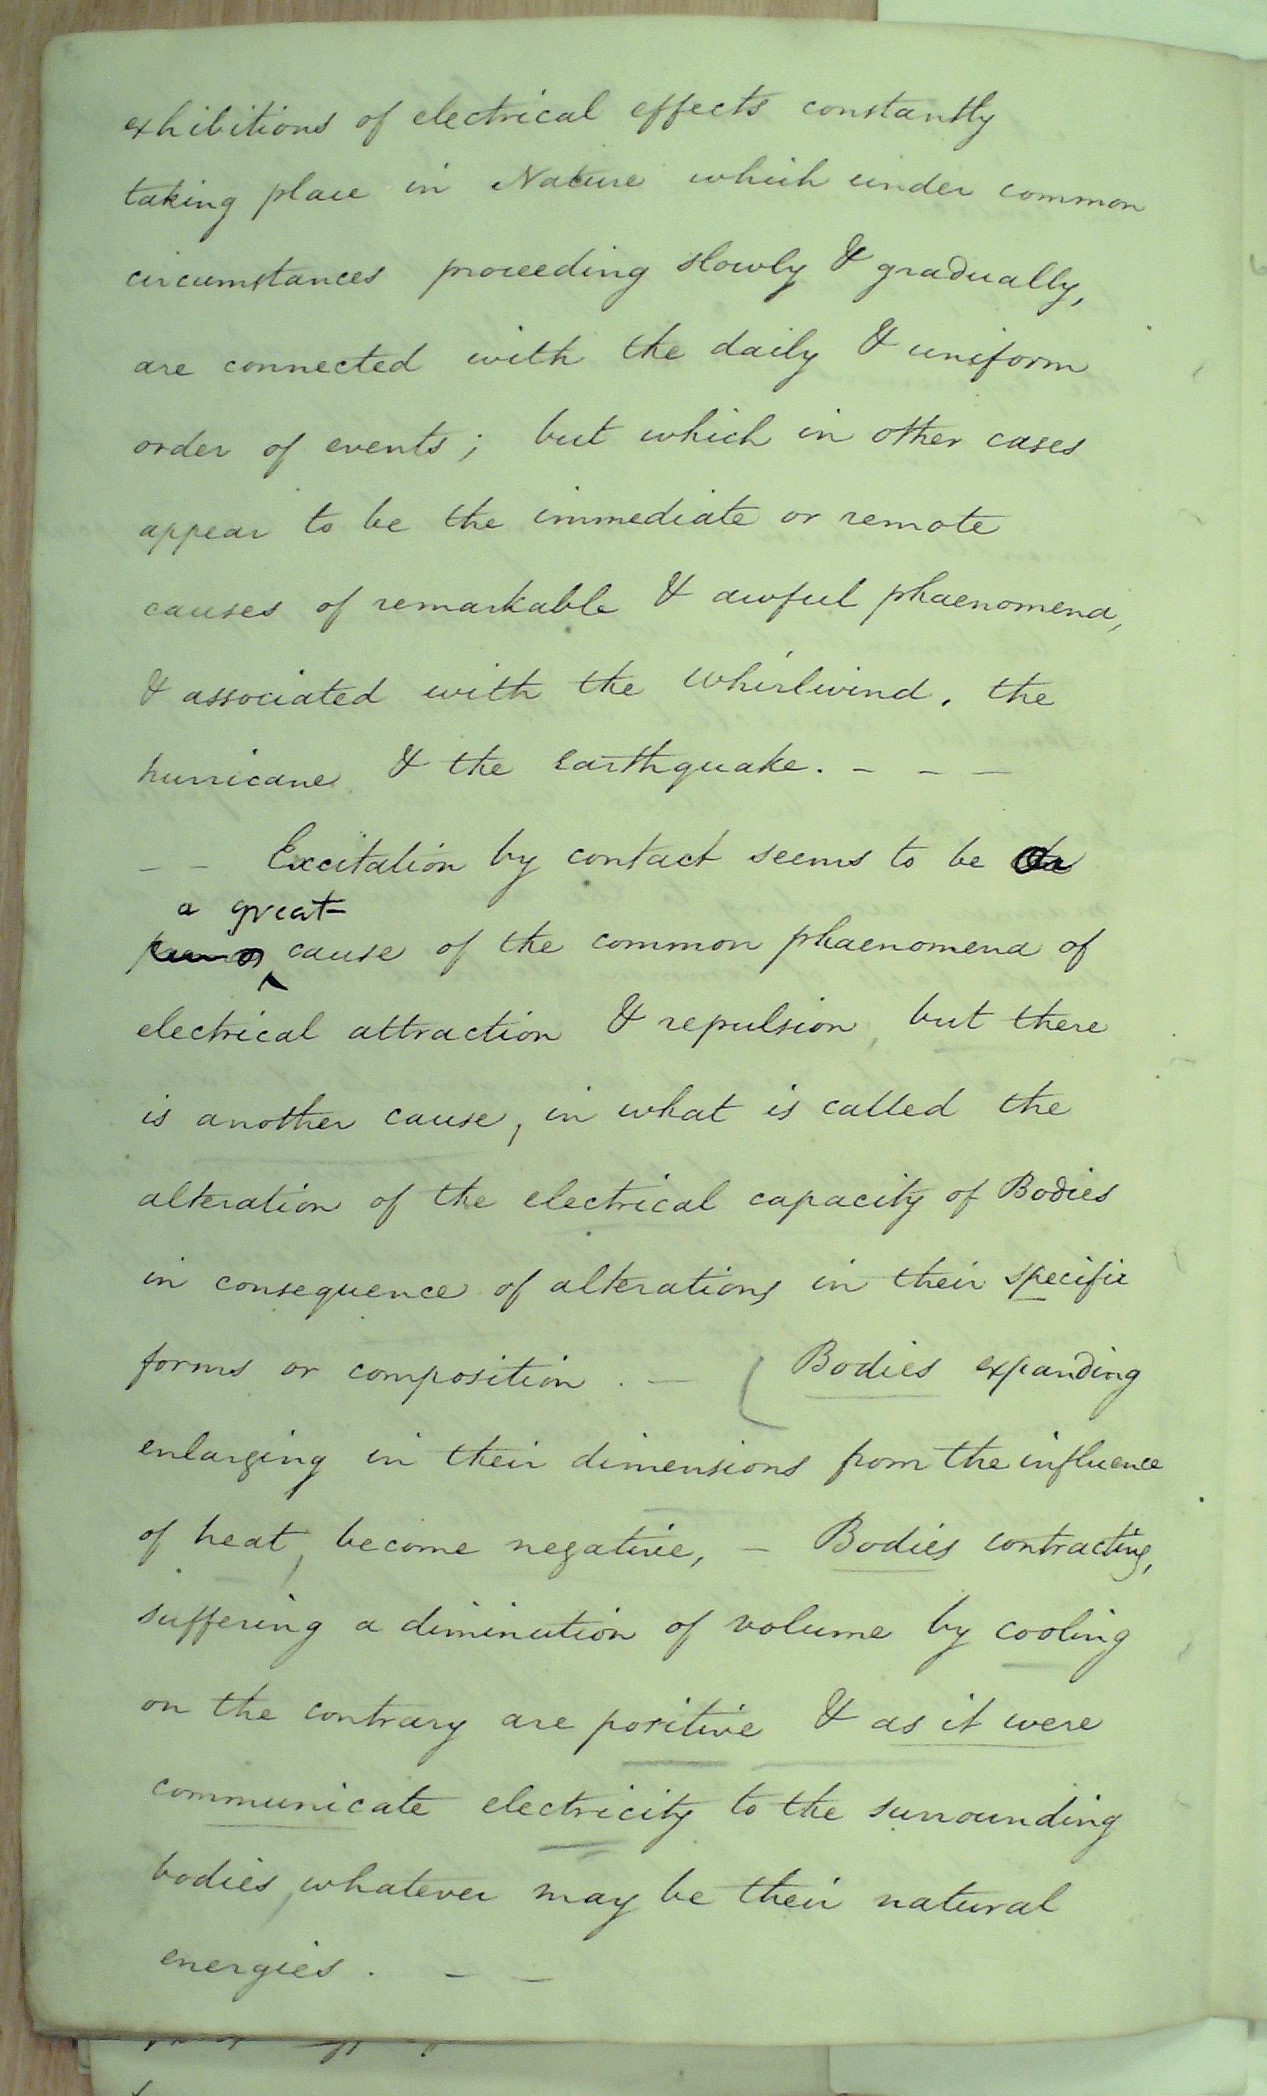 exhibitions of electrical effects constantly
taking place in Nature which under common
circumstances proceeding slowly & gradually,
are connected with the daily & uniform
order of events; but which in other cases
appear to be the immediate or remote
causes of remarkable & awful phaenomena,
& associated with the whirlwind, the
hurricane & the earthquake. - - -
- - Excitation by contact seems to be
a great
cause of the common phaenomena of
electrical attraction & repulsion, but there
is another cause, in what is called the
alteration of the electrical capacity of Bodies
in consequence of alterations in their specific
forms or composition. - ( Bodies expanding
enlarging in their dimensions from the influence
of heat, become negative, - Bodies contracting,
suffering a diminution of volume by cooling
on the contrary are positive & as it were
communicate electricity to the surrounding
bodies, whatever may be their natural
energies. - -